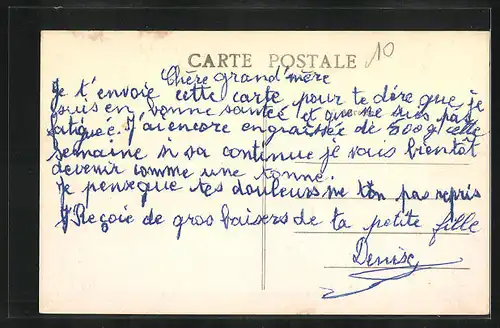 CARTE POSTALE
10
Chère grand'mère
Je t'envoie cette carte pour te dére que je
suis en bonne santée et que ne suis pas
fatiguée. J'ai encore engraissée de 500g cette
semaine si sa continue je vais bientôt
devenir comme une tonne.
Je pense que tes douleurs ne t'on pas repris
Reçoie de gros baisers de ta petite fille
Denise